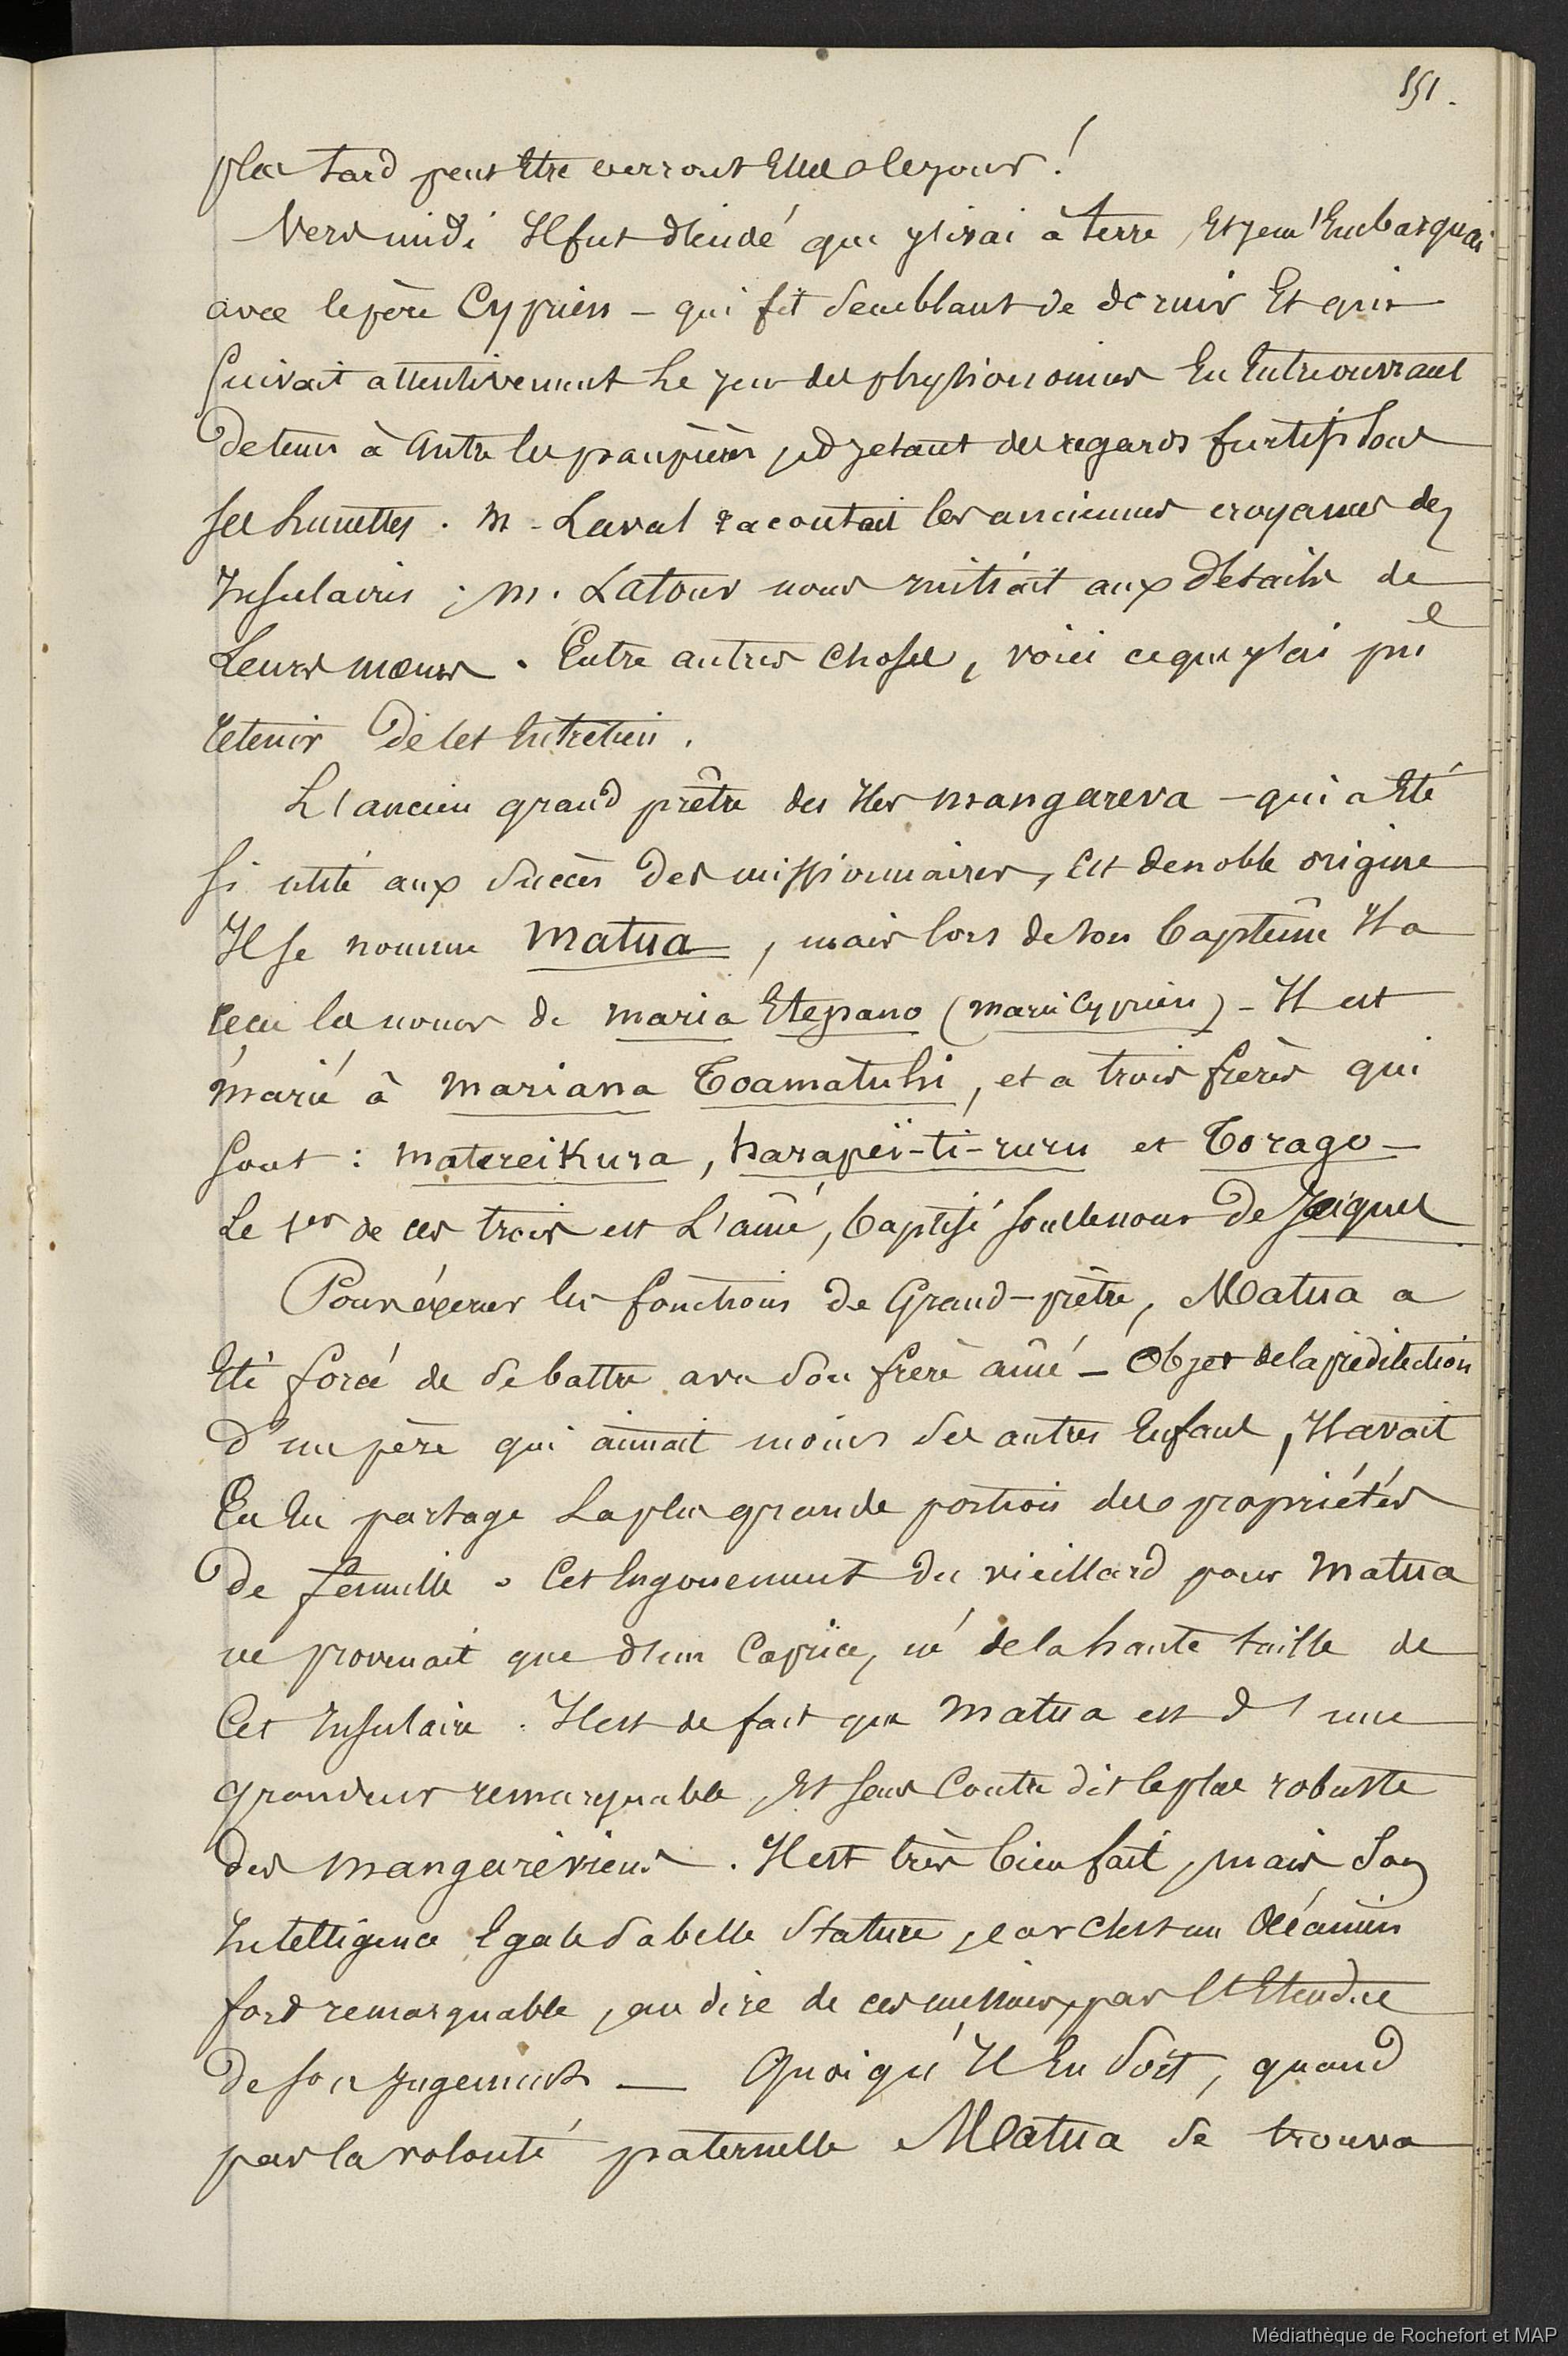 151.
plus tard peut Etre verront Elles le jour !
Vers midi Il fut décidé que j'irai à terre, Et je m'Embarquai
avec le père Cyprien - qui fit semblant de dormir Et qui
suivait attentivement le jeu des physionomies En Entreouvrant
de tems à autre les paupières, et jetant des regards furtifs sous
ses lunettes. M. Laval racontait les anciennes croyances des
Insulaires ; M. Latour nous initiait aux détails de
Leurs mœurs. Entre autres choses, voici ce que j'ai pu
retenir de cet Entretien.
L'ancien grand prêtre des Iles Mangareva - qui a Eté
si utile aux succès des missionnaires, Est de noble origine
Il se nomme Matua, mais lors de son baptême Il a
reçu les noms de Maria Etepano (Marie Cyprien) - Il est
marié à Mariana Toamatuhi, et a trois frères qui
sont : Matereikura, harapeï-ti-ruru et Torago -
Le 1er de ces trois est L'aîné, baptisé sous le nom de Jaiques
Pour éxercer les fonctions de Grand-prêtre, Matua a
Eté forcé de se battre avec son frère aîné - Objet de la prédilection
d'un père qui aimait moins ses autres Enfants, Il avait
Eu En partage La plus grande portion des propriétés
de famille. Cet Engouement du vieillard pour Matua
ne provenait que d'un Caprice, né de la haute taille de
Cet Insulaire. Il est de fait que Matua est d'une
grandeur remarquable, Et sans Contre dit le plus robuste
des Mangaréviens. Il est très bien fait, mais son
Intelligence Egale sa belle stature, car c'est un Océanien
fort remarquable, au dire de ces messieurs, par l'Etendue
de son jugement — Quoiqu'Il En soit, quand
par la volonté paternelle Matua se trouva
Médiathèque de Rochefort et MAP